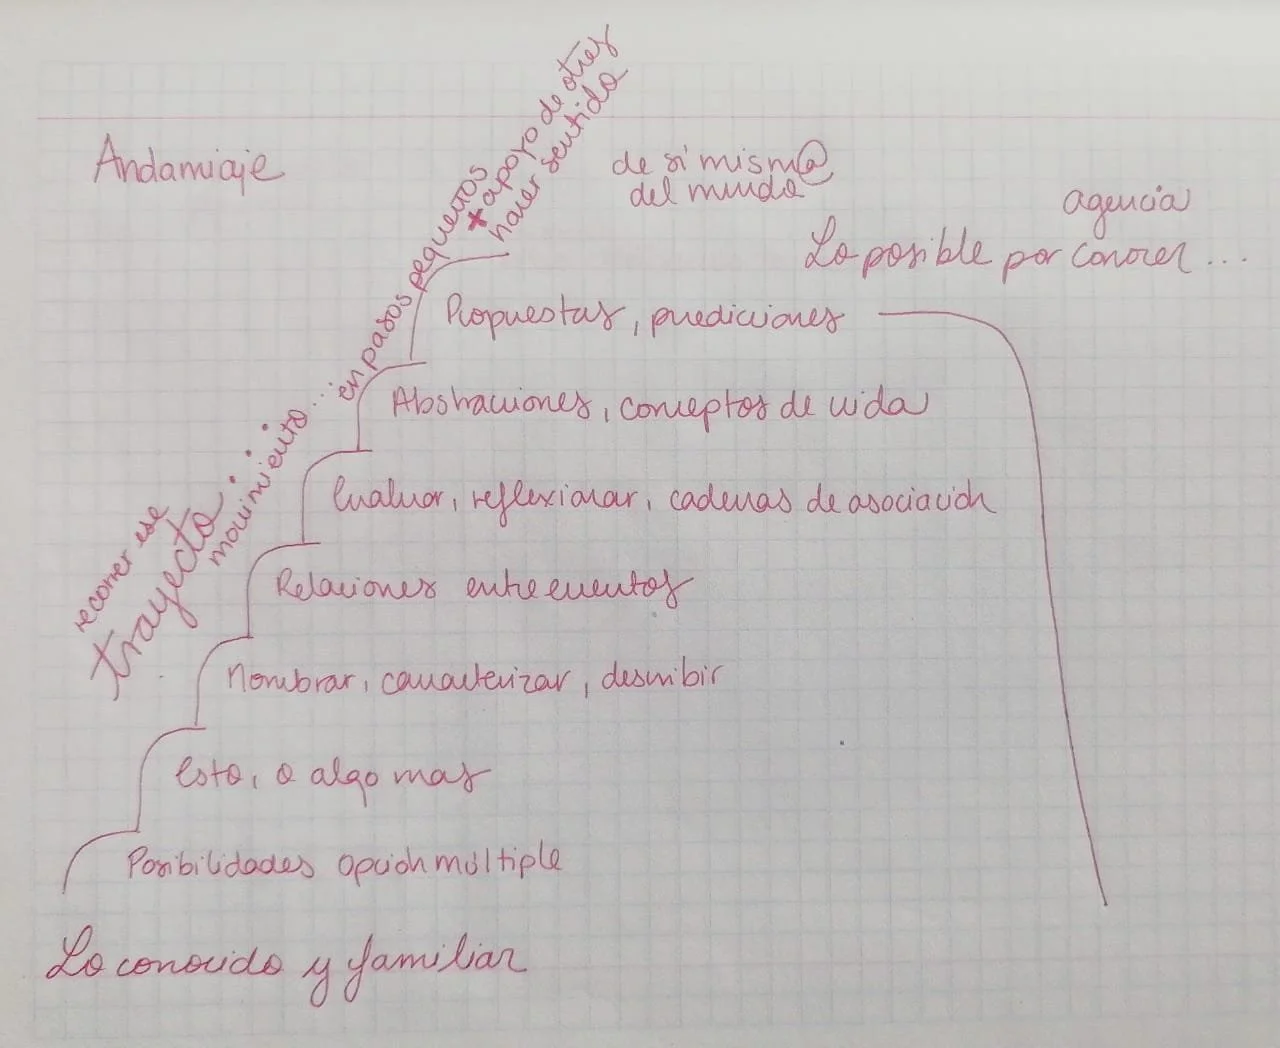 Andamiaje
recorrer ese
trayecto...
movimiento... en pasos pequeños
+ apoyo de otres
hacer sentido
de si mism@
del mundo
agencia
Lo posible por conocer...
Propuestas, predicciones
Abstracciones, conceptos de vida
Evaluar, reflexionar, cadenas de asociación
Relaciones entre eventos
Nombrar, caracterizar, describir
Esto, o algo mas
Posibilidades opción múltiple
Lo conocido y familiar